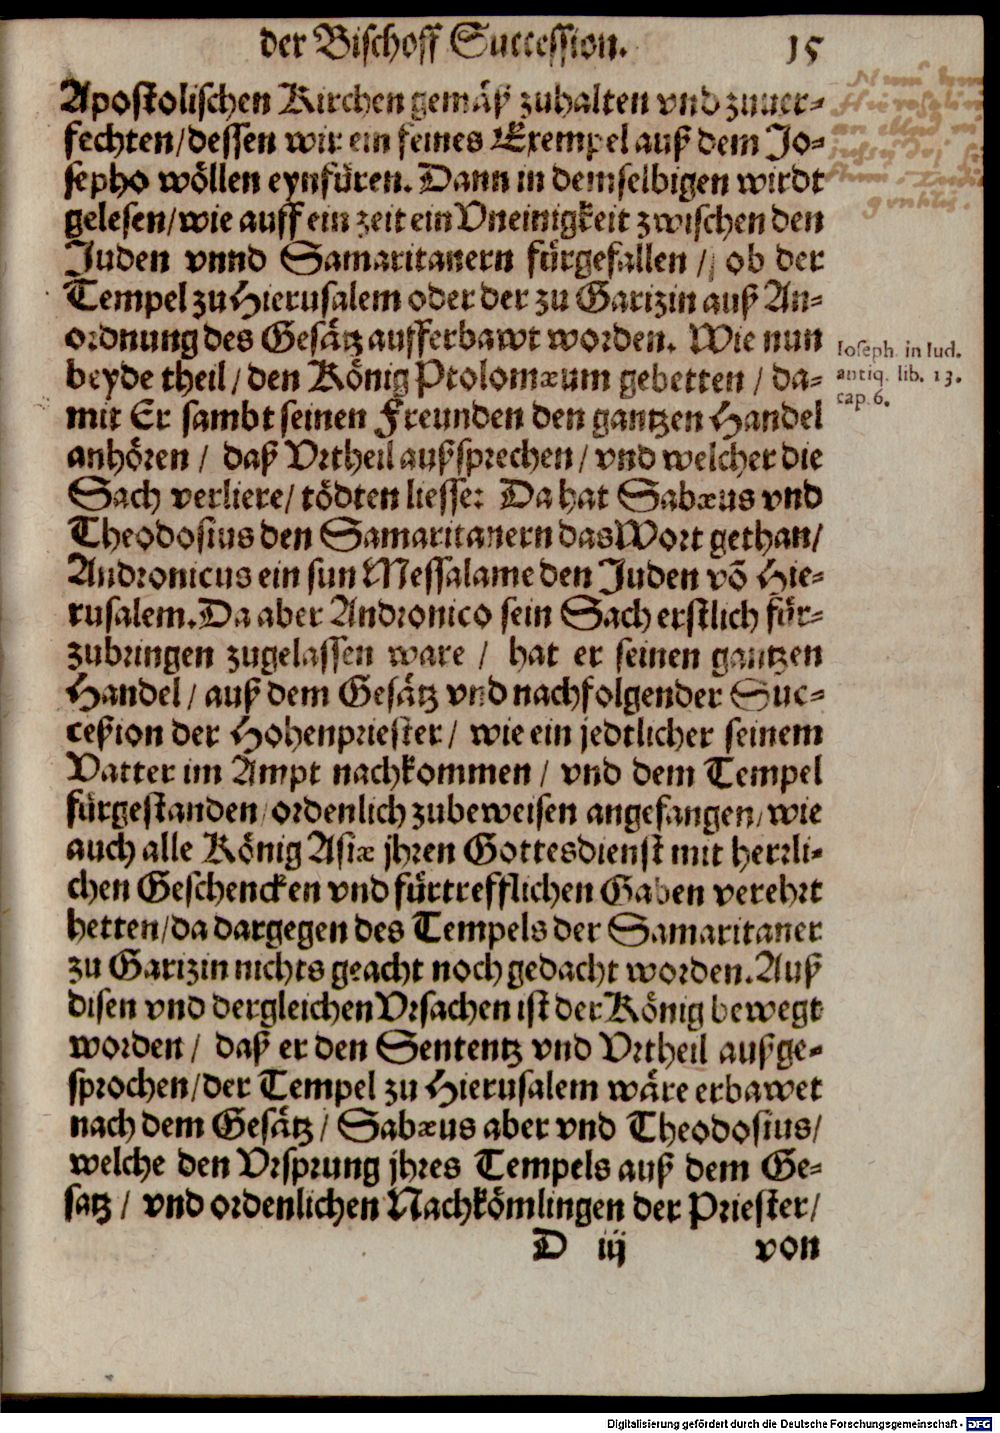 der Bischoff Succession. 15
Apostolischen Kirchen gemäß zuhalten vnd zuuer-
fechten/dessen wir ein feines Exempel auß dem Jo-
sepho wöllen eynfüren. Dann in demselbigen wirdt
gelesen/wie auff ein zeit ein Vneinigkeit zwischen den
Juden vnnd Samaritanern fürgefallen / ob der
Tempel zu Hierusalem oder der zu Garizin auß An-
ordnung des Gesätz aufferbawt worden. Wie nun
beyde theil/den König Ptolomæum gebetten / da-
mit Er sambt seinen Freunden den gantzen Handel
anhören / daß Vrtheil außsprechen/vnd welcher die
Sach verliere/tödten liesse: Da hat Sabæus vnd
Theodosius den Samaritanern das Wort gethan/
Andronicus ein sun Messalame den Juden võ Hie-
rusalem. Da aber Andronico sein Sach erstlich für-
zubringen zugelassen ware / hat er seinen gantzen
Handel/auß dem Gesätz vnd nachfolgender Suc-
ceßion der Hohenpriester/ wie ein jedtlicher seinem
Vatter im Ampt nachkommen/ vnd dem Tempel
fürgestanden/ordenlich zubeweisen angefangen/wie
auch alle König Asiæ jhren Gottesdienst mit herrli-
chen Geschencken vnd fürtrefflichen Gaben verehrt
hetten/da dargegen des Tempels der Samaritaner
zu Garizin nichts geacht noch gedacht worden. Auß
disen vnd dergleichen Vrsachen ist der König bewegt
worden/ daß er den Sententz vnd Vrtheil außge-
sprochen/der Tempel zu Hierusalem wäre erbawet
nach dem Gesätz/Sabæus aber vnd Theodosius/
welche den Vrsprung jhres Tempels auß dem Ge-
satz/ vnd ordenlichen Nachkömlingen der Priester/
D iij von
Ioseph. in Iud.
antiq. lib. 13.
cap 6.
Digitalisierung gefördert durch die Deutsche Forschungsgemeinschaft - DFG